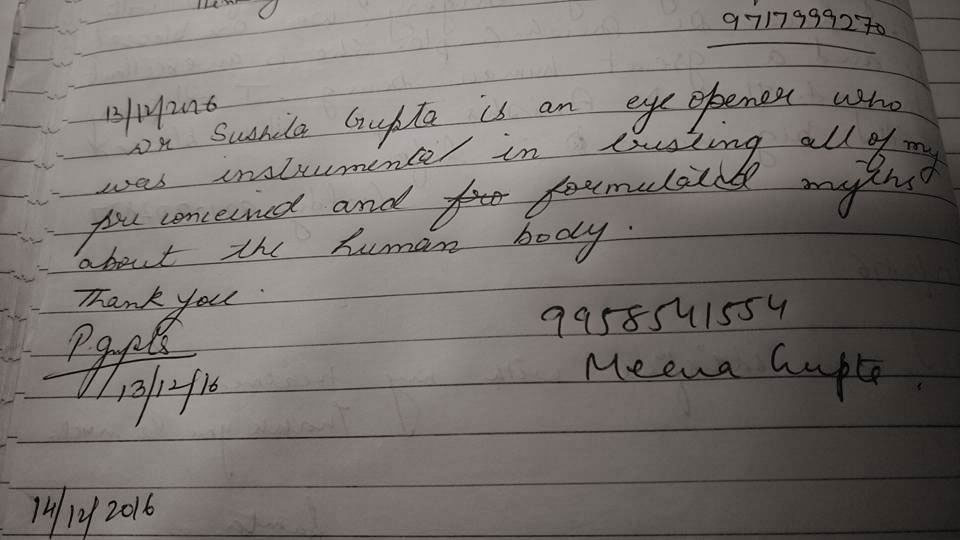 9717999270
13/12/2016
Dr Sushila Gupta is an eye opener who
was instrumental in busting all of my
pre conceived and fro formulated myths
about the human body.
Thank you.
P gupta
13/12/16
9958541554
Meena Gupta.
14/12/2016